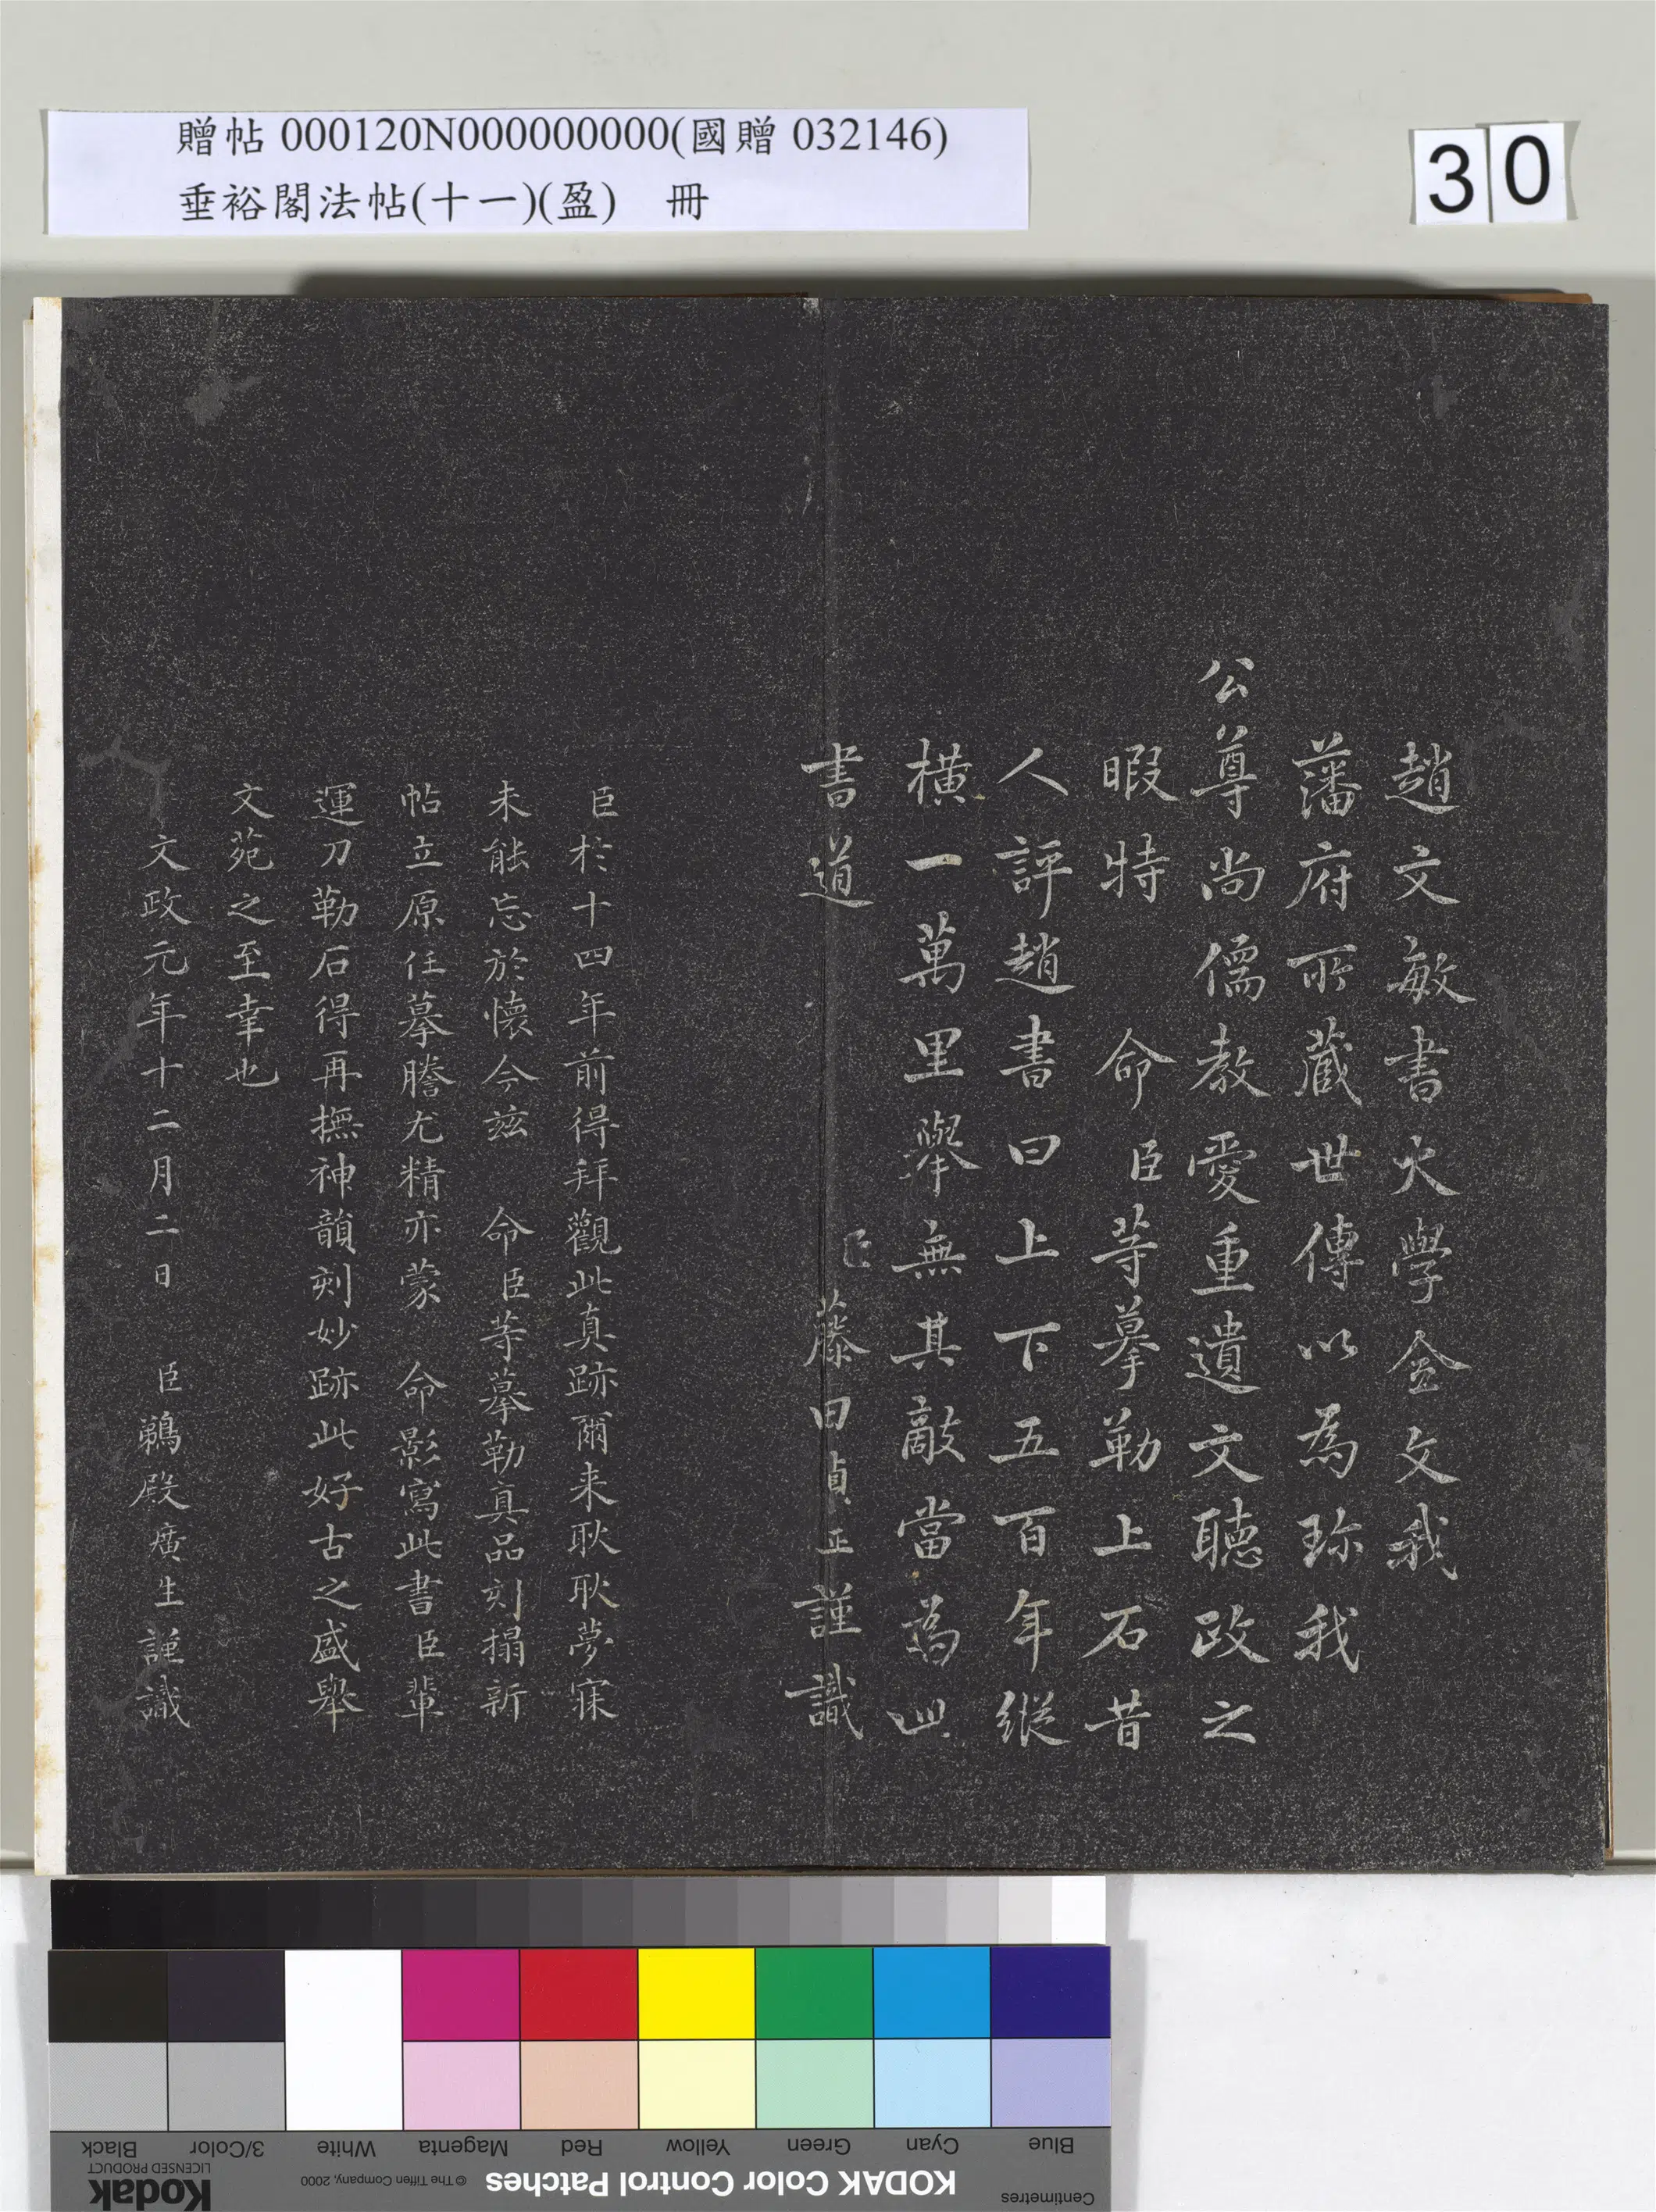 贈帖 000120N000000000(國贈 032146)
垂裕閣法帖(十一)(盈) 冊
30
趙文敏書大學全文我
藩府所蔵世傳以為珎我
公尊尚儒教愛重遺文聴政之
暇特 命臣等摹勒上石昔
人評趙書曰上下五百年縱
橫一萬里舉無其敵當為此
書道 臣藤田貞正謹識
臣於十四年前得拜觀此真跡爾来耿耿夢寐
未能忘於懷今茲 命臣等摹勒真品刻搨新
帖立原任摹謄尤精亦蒙 命影寫此書臣輩
運刀勒石得再撫神韻刻妙跡此好古之盛舉
文苑之至幸也
文政元年十二月二日 臣鵜殿廣生謹識
Blue
Cyan
Green
Yellow
Red
Magenta
White
3/Color
Black
Centimetres
KODAK Color Control Patches
© The Tiffen Company, 2000
Kodak
LICENSED PRODUCT